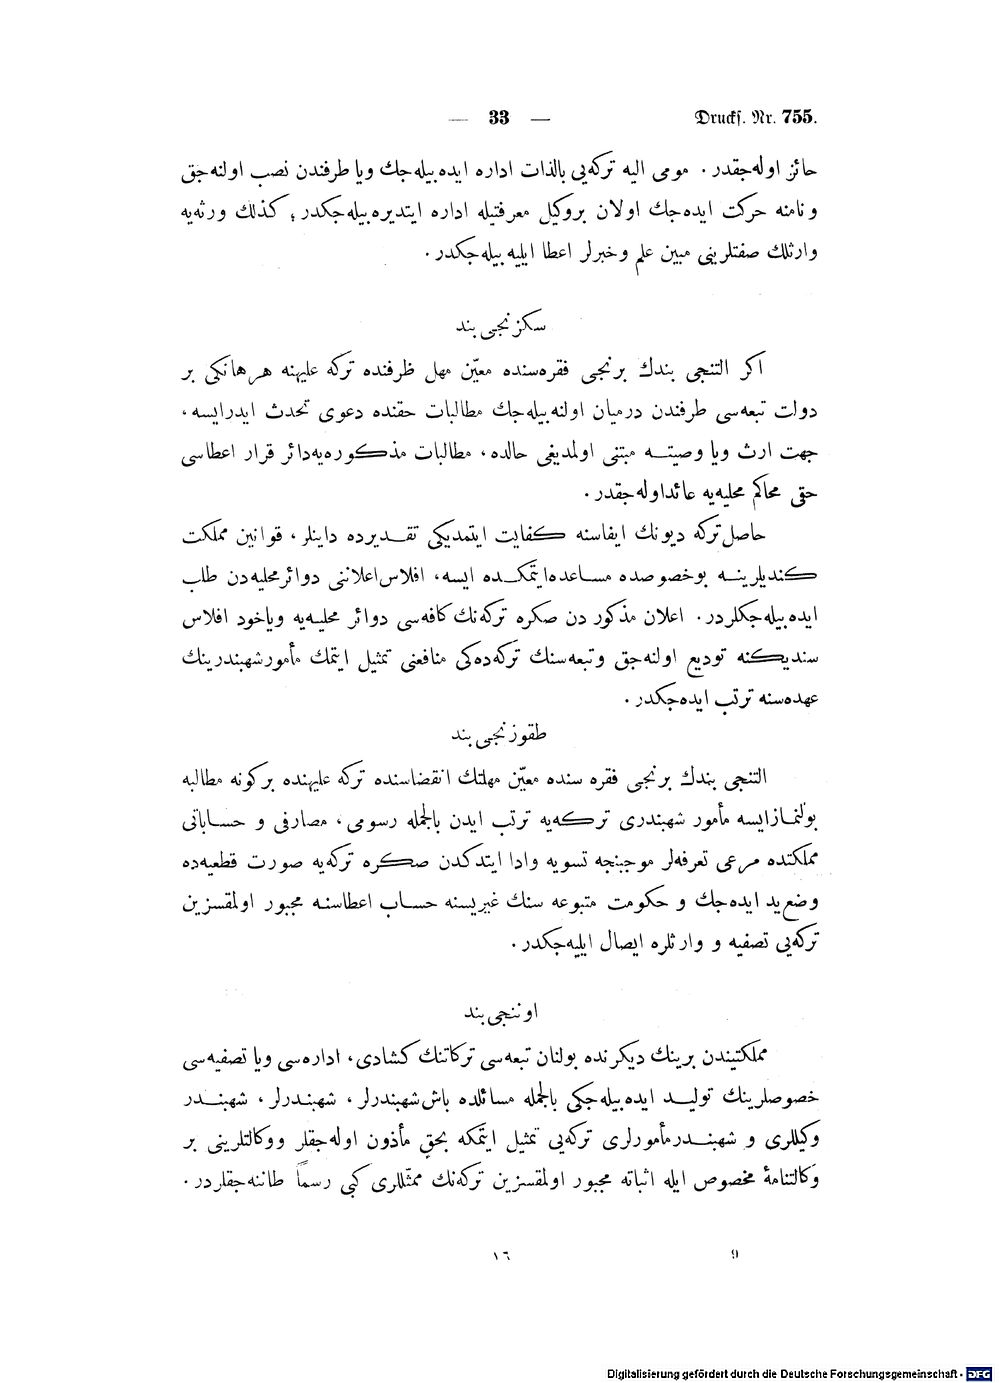 — 33 — Drucks. Nr. 755.
حائز اوله‌جقدر. مومی الیه تركه‌یی بالذات اداره ایده‌بیله‌جك ویا طرفندن نصب اولنه‌جق
ونامنه حركت ایده‌جك اولان بروكیل معرفتیله اداره ایتدیره‌بیله‌جكدر؛ كذلك ورثه‌یه
وارثلك صفتلرینی مبین علم وخبرلر اعطا ایلیه‌بیله‌جكدر.
سكزنجی بند
اكر التنجی بندك برنجی فقره‌سنده معیّن مهل ظرفنده تركه علیهنه هرهانكی بر
دولت تبعه‌سی طرفندن درمیان اولنه‌بیله‌جك مطالبات حقنده دعوی تحدث ایدرایسه،
جهت ارث ویا وصیتـه مبتنی اولمدیغی حالده، مطالبات مذكوره‌یه‌دائر قرار اعطاسی
حق محاكم محلیه‌یه عائداوله‌جقدر.
حاصل تركه دیونك ایفاسنه كفایت ایتمدیكی تقـدیرده داینلر، قوانین مملكت
كندیلرینـه بوخصوصده مساعده‌ایتمكـده ایسه، افلاس‌اعلاننی دوائرمحلیه‌دن طلب
ایده‌بیله‌جكلردر. اعلان مذكور دن صكره تركه‌نك كافه‌سی دوائر محلیـه‌یه ویاخود افلاس
سندیكنه تودیع اولنه‌جق وتبعه‌سنك تركه‌ده‌كی منافعنی تمثیل ایتمك مأمورشهبندرینك
عهده‌سنه ترتب ایده‌جكدر.
طقوزنجی بند
التنجی بندك برنجی فقره سنده معیّن مهلتك انقضاسنده تركه علیهنده بركونه مطالبه
بولنمـازایسه مأمور شهبندری تركـه‌یه ترتب ایدن بالجمله رسومی، مصارفی و حسـاباتی
مملكتده مرعی تعرفه‌لر موجبنجه تسویه وادا ایتدكدن صكره تركه‌یه صورت قطعیه‌ده
وضع‌ید ایده‌جك و حكومت متبوعه سنك غیریسنه حسـاب اعطاسنـه مجبور اولمقسزین
تركه‌یی تصفیه و وارثلره ایصال ایلیه‌جكدر.
اوننجی بند
مملكتیندن برینك دیكرنده بولنان تبعه‌سی تركاتنك كشادی، اداره‌سی ویا تصفیه‌سی
خصوصلرینك تولیـد ایده‌بیله‌جكی بالجمله مسائلده باش‌شهبندرلر، شهبنـدرلر، شهبنـدر
وكیللری و شهبنـدرمأمورلری تركه‌یی تمثیل ایتمكه بحق مأذون اوله‌جقلر ووكالتلرینی بر
وكالتنامۀ مخصوص ایله اثباته مجبور اولمقسزین تركه‌نك ممثّللری كبی رسماً طاننه‌جقلردر.
١٦ 9
Digitalisierung gefördert durch die Deutsche Forschungsgemeinschaft - DFG